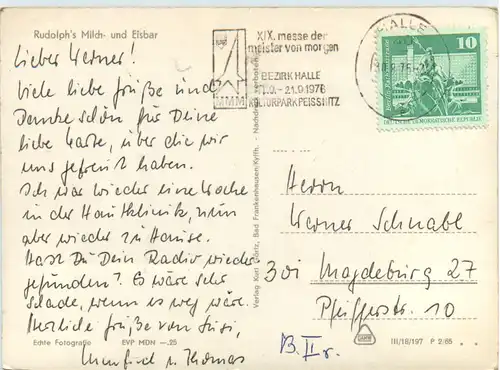 Rudolph's Milch- und Eisbar
Lieber Werner!
Viele liebe Grüße und
Dankeschön für Deine
liebe Karte, über die wir
uns gefreut haben.
Ich war wieder eine Woche
in der Hautklinik, nun
aber wieder zu Hause.
Hast Du Dein Radio wieder
gefunden? Es wäre sehr
schade, wenn es weg wäre.
Herzliche Grüße von Susi,
Manfred u. Thomas
Echte Fotografie EVP MDN —.25
Verlag Kurt Görtz, Bad Frankenhausen/Kyffh. - Nachdruck verboten
XIX. messe der
meister von morgen
BEZIRK HALLE
- 21.9.1976
KULTURPARK PEISSNITZ
MMM
HALLE
10
DEUTSCHE DEMOKRATISCHE REPUBLIK
Herrn
Werner Schnabl
301 Magdeburg 27
Pfeifferstr. 10
B. II r.
III/18/197 P 2/65